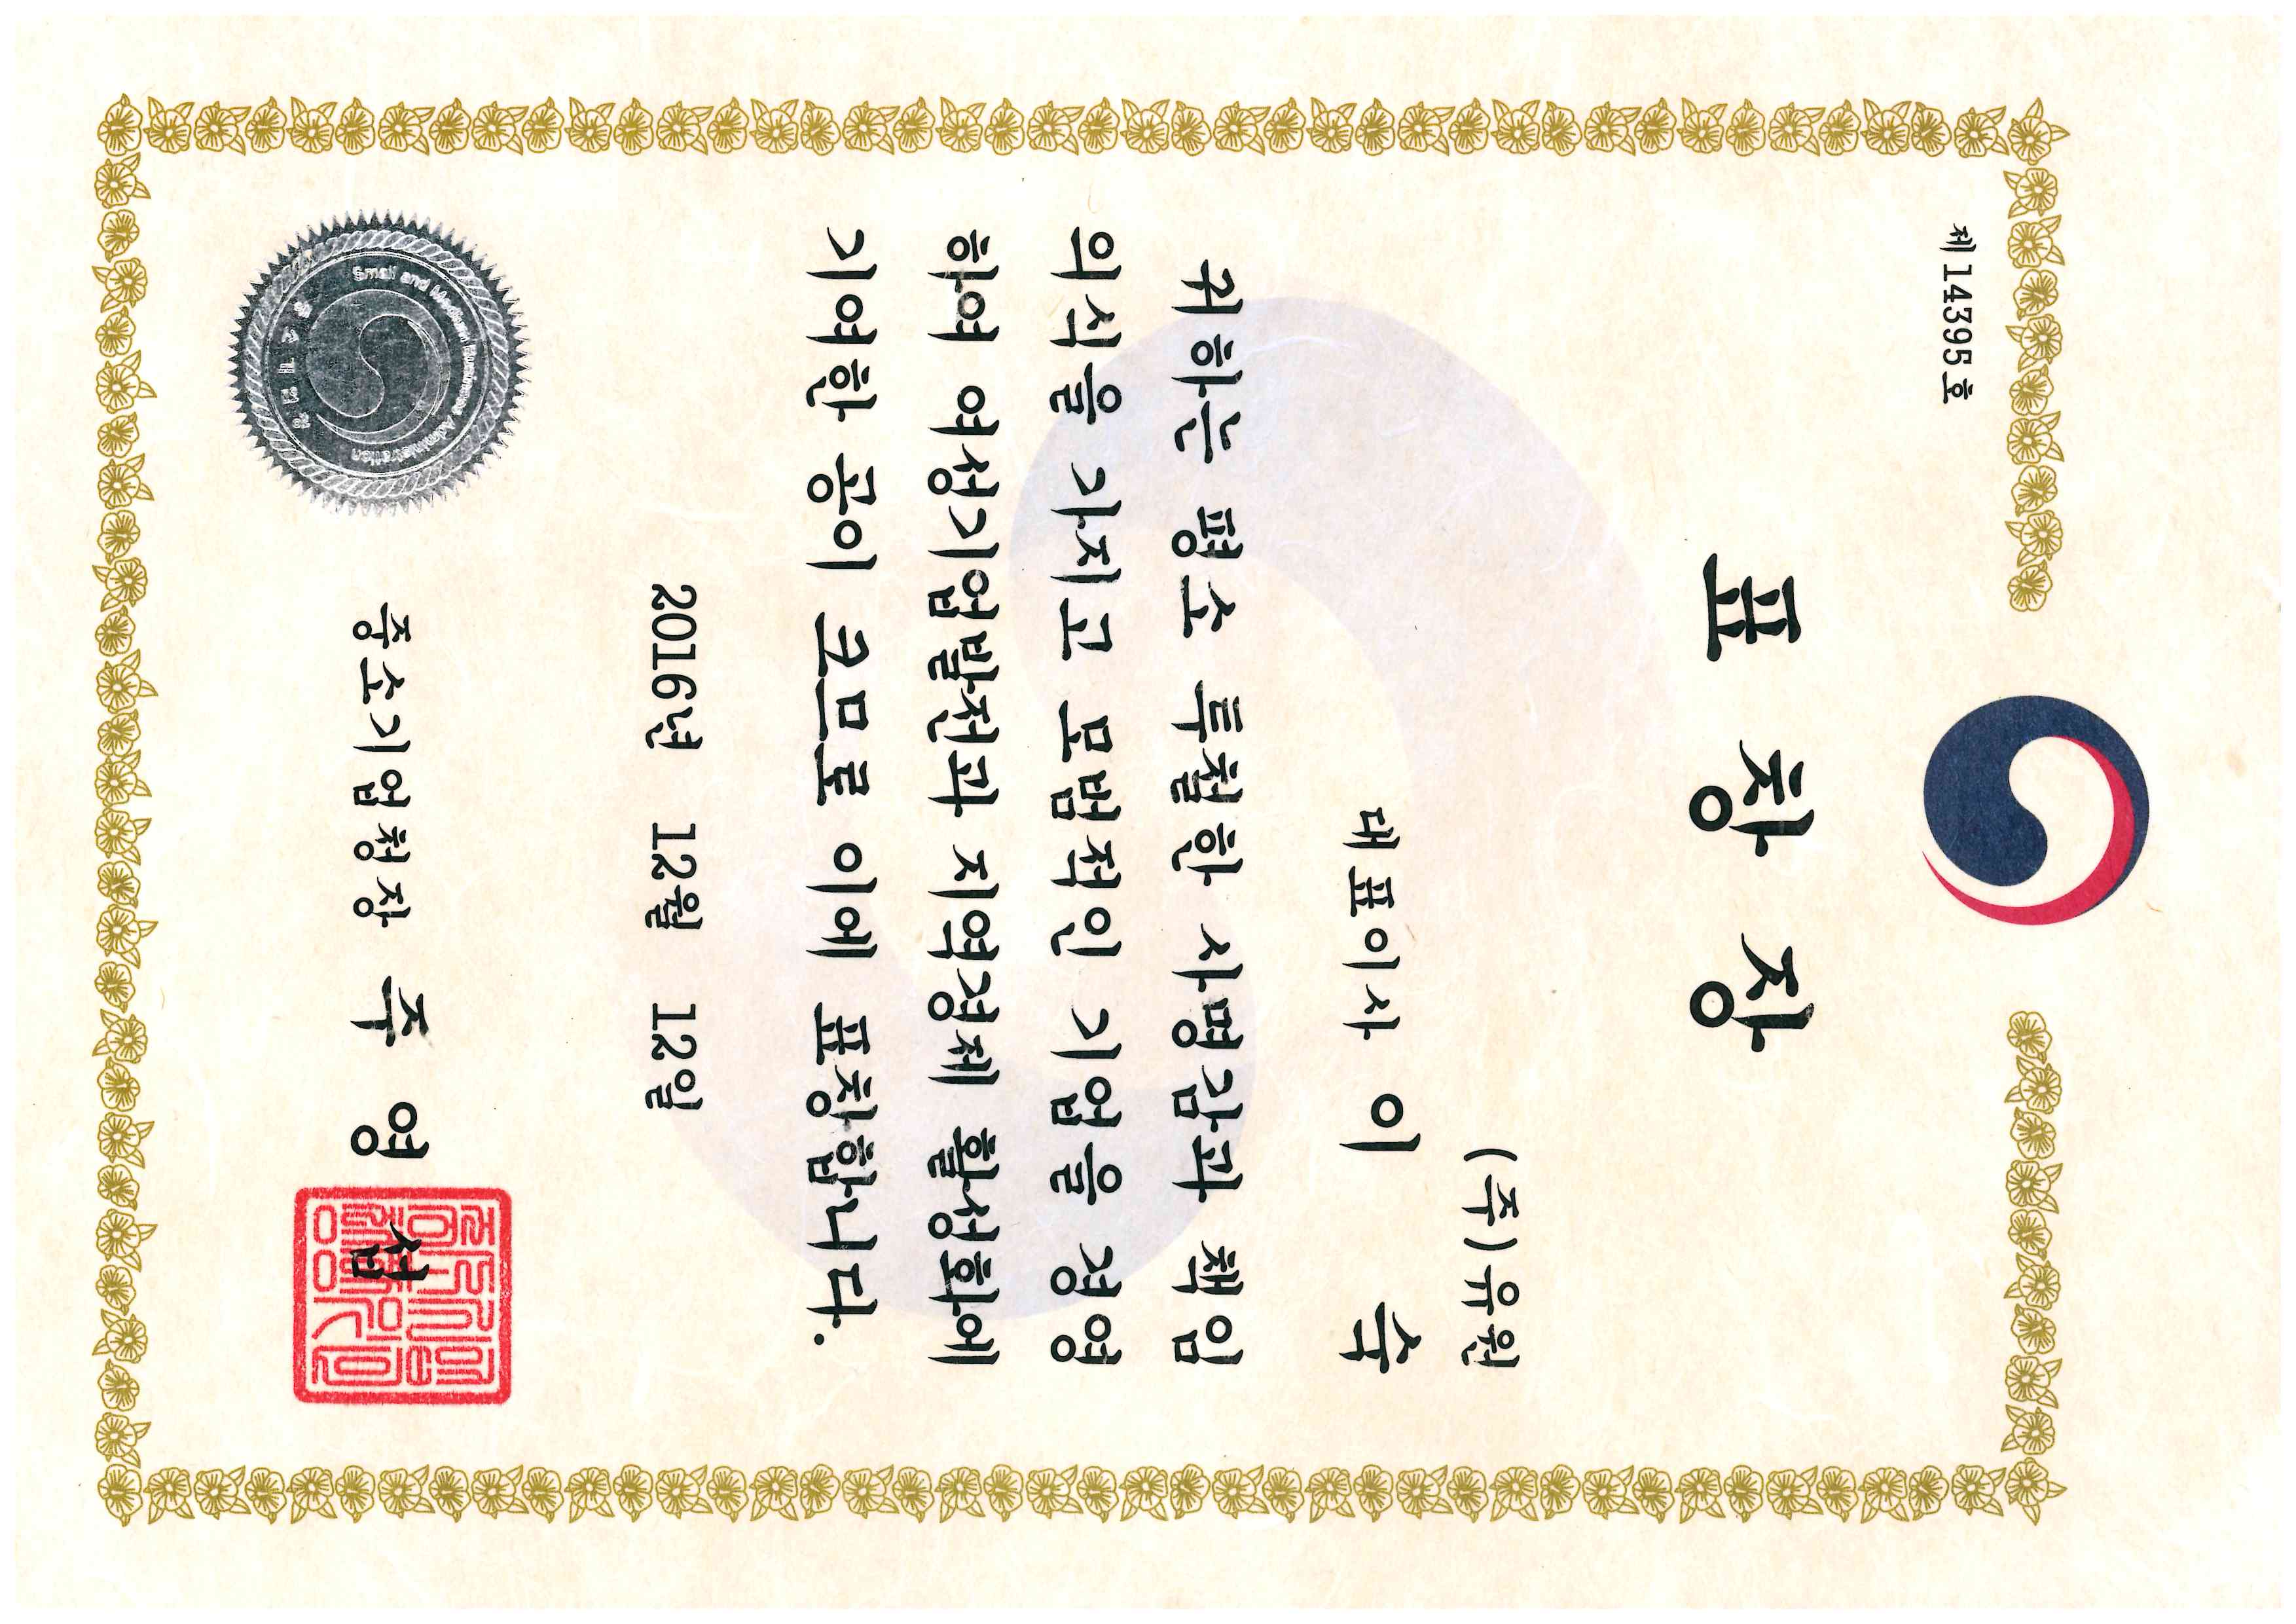 제143395호
표창장
(주)유원
대표이사 이 숙
귀하는 평소 투철한 사명감과 책임
의식을 가지고 모범적인 기업을 경영
하여 여성기업발전과 지역경제 활성화에
기여한 공이 크므로 이에 표창합니다.
2016년 12월 12일
중소기업청장 주 영 섭
Small and Medium Business Administration
중소기업청